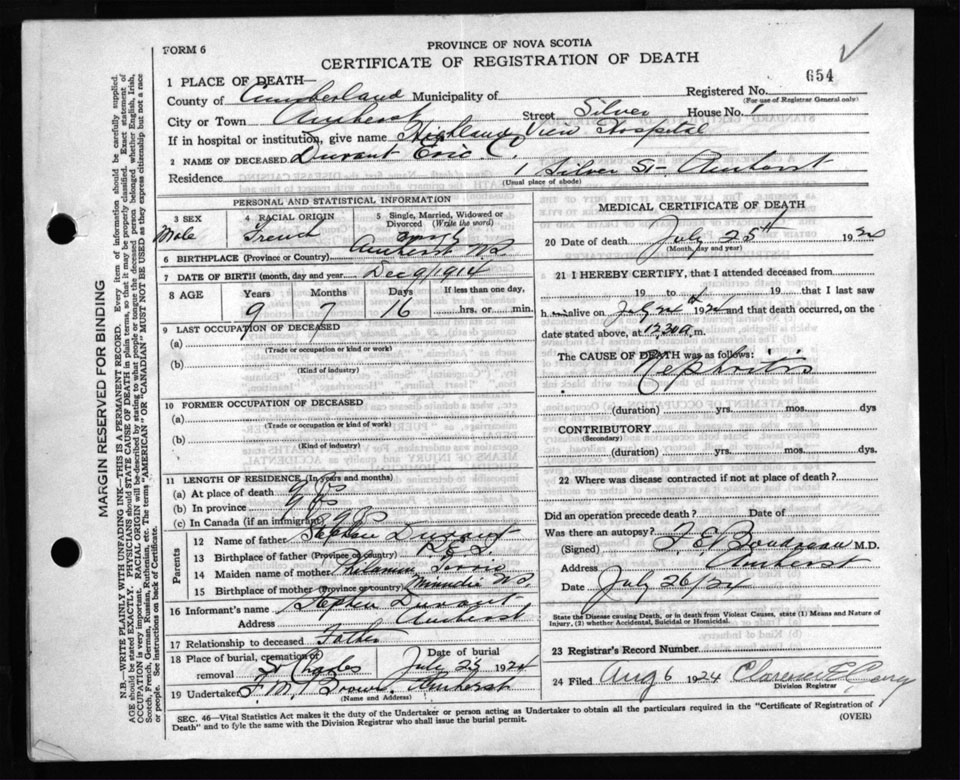 FORM 6
PROVINCE OF NOVA SCOTIA
CERTIFICATE OF REGISTRATION OF DEATH
654
1 PLACE OF DEATH—
Registered No.
(For use of Registrar General only)
County of Cumberland Municipality of
City or Town Amherst Street Silver House No. 1
If in hospital or institution, give name Highland View Hospital
2 NAME OF DECEASED Durant Eric C.
Residence 1 Silver St Amherst
(Usual place of abode)
PERSONAL AND STATISTICAL INFORMATION
3 SEX
Male
4 RACIAL ORIGIN
French
5 Single, Married, Widowed or Divorced (Write the word)
6 BIRTHPLACE (Province or Country) Amherst N.S.
7 DATE OF BIRTH (month, day and year) Dec 9/1914
8 AGE Years Months Days If less than one day,
9 7 16 hrs. or min.
9 LAST OCCUPATION OF DECEASED
(a)
(Trade or occupation or kind or work)
(b)
(Kind of industry)
10 FORMER OCCUPATION OF DECEASED
(a)
(Trade or occupation or kind of work)
(b)
(Kind of industry)
11 LENGTH OF RESIDENCE (In years and months)
(a) At place of death 9 yrs
(b) In province 9 yrs
(c) In Canada (if an immigrant) 9 yrs
Parents
12 Name of father Stephen Durant
13 Birthplace of father (Province or country) P.E.I.
14 Maiden name of mother
15 Birthplace of mother (Province or country) Minudie N.S.
16 Informant's name Stephen Durant
Address Amherst
17 Relationship to deceased Father
18 Place of burial, cremation or removal St Charles
Date of burial
July 1924
19 Undertaker F. M. Brown Amherst
(Name and Address)
MEDICAL CERTIFICATE OF DEATH
20 Date of death July 25th 1924
(Month, day and year)
21 I HEREBY CERTIFY, that I attended deceased from
19 to 19 that I last saw
h alive on July 1924 and that death occurred, on
date stated above, at 12.30 a. m.
The CAUSE OF DEATH was as follows:
Nephritis
(duration) yrs. mos. dys
CONTRIBUTORY
(Secondary)
(duration) yrs. mos. dys.
22 Where was disease contracted if not at place of death?
Did an operation precede death? Date of
Was there an autopsy?
(Signed) F. E. Boudreau M.D.
Address Amherst
Date July 26/24
State the Disease causing Death, or in death from Violent Causes, state (1) Means and Nature of Injury, (2) whether Accidental, Suicidal or Homicidal.
23 Registrar's Record Number
24 Filed Aug 6 1924 Clarence E.
Division Registrar
SEC. 46—Vital Statistics Act makes it the duty of the Undertaker or person acting as Undertaker to obtain all the particulars required in the "Certificate of Registration of
Death" and to fyle the same with the Division Registrar who shall issue the burial permit.
(OVER)
MARGIN RESERVED FOR BINDING
N.B.—WRITE PLAINLY WITH UNFADING INK—THIS IS A PERMANENT RECORD. Every item of information should be carefully supplied.
AGE should be stated EXACTLY. PHYSICIANS should STATE CAUSE OF DEATH in plain terms, so that it may be properly classified. Exact statement of
OCCUPATION is very important. RACIAL ORIGIN will be described by stating to what people or tongue the deceased person belonged whether English, Irish,
Scotch, French, German, Russian, Ruthenian, etc. The terms "AMERICAN" OR "CANADIAN" MUST NOT BE USED as they express citizenship but not a race
or people. See instructions on back of Certificate.